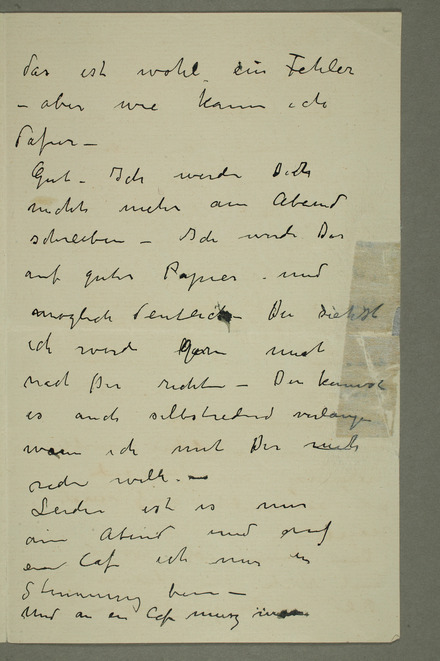 das ist wohl ein Fehler
– aber wie kann ich
dafur –
Gut – Ich werde Dich
nichts mehr am Abend
schreiben – Ich werde Dir
auf gutes Papier – und
moglich deutlich – Du siehst
ich werd gern mich
nach Dir richten – Du kannst
es auch selbstredend verlangen
wenn ich mit Dir
reden will. –
Leider ist es nur
am Abend und auf
ein Caf ich nur in
Stimmung bin –
Und an ein Caf